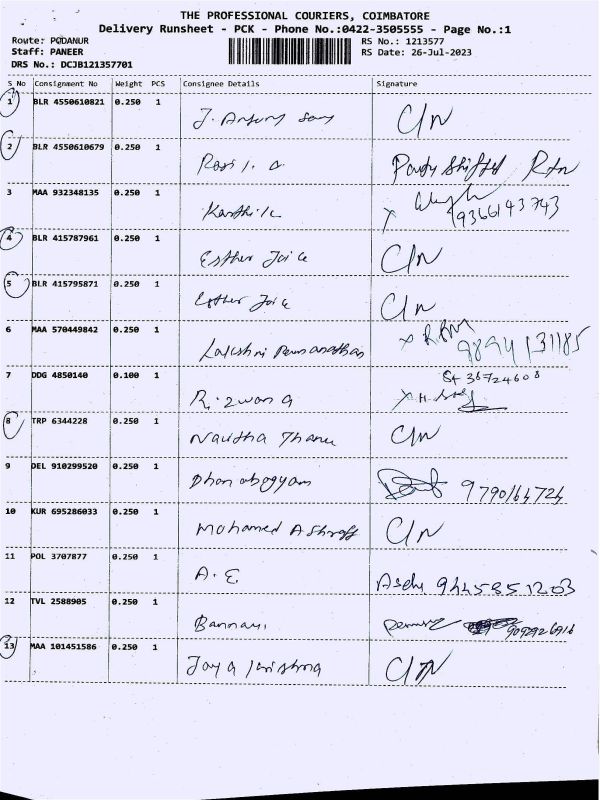 THE PROFESSIONAL COURIERS, COIMBATORE
Delivery Runsheet - PCK - Phone No.:0422-3505555 - Page No.:1
Route: PODANUR RS No.: 1213577
Staff: PANEER RS Date: 26-Jul-2023
DRS No.: DCJB121357701
S No Consignment No Weight PCS Consignee Details Signature
1 BLR 4550610821 0.250 1
J. C/N
2 BLR 4550610679 0.250 1
Party Shifted Rtn
3 MAA 932348135 0.250 1
Karthik
9366143743
4 BLR 415787961 0.250 1
Esther Joice C/N
5 BLR 415795871 0.250 1
Esther Joice C/N
6 MAA 570449842 0.250 1
Lakshmi 9894131185
7 DDG 4850140 0.100 1
8 TRP 6344228 0.250 1
C/N
9 DEL 910299520 0.250 1
9790164724
10 KUR 695286033 0.250 1
Mohamed Ashraff C/N
11 POL 3707877 0.250 1
A. E. 9445851203
12 TVL 2588905 0.250 1
Bannari
13 MAA 101451586 0.250 1
Jaya krishna C/N